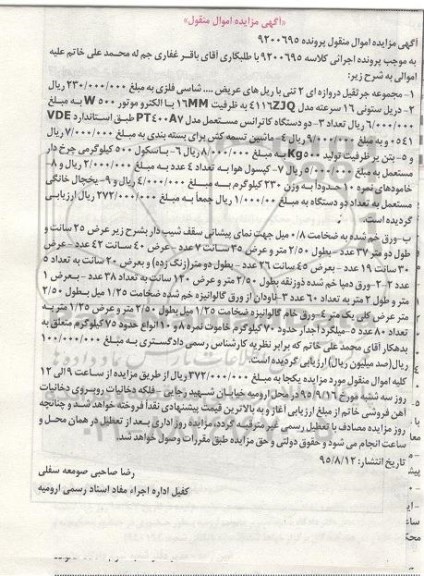 «آگهی مزایده اموال منقول»
آگهی مزایده اموال منقول پرونده ۹۲۰۰۶۹۵
به موجب پرونده اجرائی کلاسه ۹۲۰۰۶۹۵ با طلبکاری آقای باقر غفاری جم له محمد علی خاتم علیه
اموالی به شرح زیر:
۱- مجموعه جرثقیل دروازه ای ۲ تنی با ریل های عریض .... شاسی فلزی به مبلغ ۲۳۰/۰۰۰/۰۰۰ ریال
۲- دریل ستونی ۱۶ سرعته مدل ۴۱۱۶ZJQ به ظرفیت ۱۶MM با الکترو موتور ۵۰۰ W به مبلغ
۶/۰۰۰/۰۰۰ ریال تعداد ۳- دو دستگاه کاترانس مستعمل مدل PT۴۰۰A۷ طبق استاندارد VDE
۰۵۴۱ و به مبلغ ۹/۰۰۰/۰۰۰ ریال ۴- ماشین تسمه کش برای بسته بندی به مبلغ ۷/۰۰۰/۰۰۰ ریال
و ۵- بتن بر ظرفیت تولید ۵۰۰ Kg به مبلغ ۸/۰۰۰/۰۰۰ ریال ۶- باسکول ۵۰۰ کیلوگرمی چرخ دار
مستعمل به مبلغ ۵/۰۰۰/۰۰۰ ریال ۷- کپسول هوا به تعداد ۴ عدد به مبلغ ۲/۰۰۰/۰۰۰ ریال و ۸-
خاموهای نمره ۱۰ حدوداً به وزن ۲۳۰ کیلوگرم به مبلغ ۴/۰۰۰/۰۰۰ ریال و ۹- یخچال خانگی
مستعمل به تعداد دو دستگاه به مبلغ ۱/۰۰۰/۰۰ ریال جمعاً به مبلغ ۲۷۲/۰۰۰/۰۰۰ ریال ارزیابی
گردیده است.
ب- ورق خم شده به ضخامت ۰/۸ میل جهت نمای پیشانی سقف شیب دار بشرح زیر عرض ۲۵ سانت و
طول دو متر ۳۷ عدد - بطول ۲/۵۰ متر و عرض ۳۵ سانت ۷ عدد - عرض ۴۰ سانت ۴۲ عدد - عرض
۳۰ سانت ۱۹ عدد - بعرض ۴۵ سانت ۲۶ عدد - بطول دو متر (زنگ زده) و بعرض ۲۰ سانت به تعداد ۵
عدد ۲-۲- ورق دمپا خم شده ذوزنقه بطول ۲/۵۰ متر و عرض ۱۲۰ سانت به تعداد ۳۸ عدد - بعرض ۱
متر و طول ۲ متر به تعداد ۶۰ عدد ۳- ناودان از ورق گالوانیزه خم شده ضخامت ۱/۲۵ میل بطول ۲/۵۰
متر عرض کلی یک متر ۴- ورق خام گالوانیزه ضخامت ۱/۲۵ میل بطول ۲/۵۰ متر و عرض ۱/۲۵ متر به
تعداد ۸۰ عدد ۵- میلگرد آجدار حدود ۷۰ کیلوگرم خاموت نمره ۸ و ۱۰ انواع حدود ۷۵ کیلوگرم متعلق به
بدهکار آقای محمد علی خاتم که برابر نظریه کارشناس رسمی دادگستری به مبلغ ۱۰۰/۰۰۰/۰۰۰
ریال (صد میلیون ریال) ارزیابی گردیده است.
کلیه اموال منقول مورد مزایده یکجا به مبلغ ۳۷۲/۰۰۰/۰۰۰ ریال از طریق مزایده از ساعت ۹ الی ۱۲
روز سه شنبه مورخ ۹۵/۹/۱۶ در محل ارومیه خیابان شهید رجایی - فلکه دخانیات روبروی دخانیات
آهن فروشی خاتم از مبلغ ارزیابی آغاز و به بالاترین قیمت پیشنهادی نقداً فروخته خواهد شد و چنانچه
روز مزایده مصادف با تعطیل رسمی غیر مترقبه گردد، مزایده روز اداری بعد از تعطیل در همان محل و
ساعت انجام می شود و حقوق دولتی و حق مزایده طبق مقررات وصول خواهد شد.
تاریخ انتشار: ۹۵/۸/۱۲
رضا صاحبی صومعه سفلی
کفیل اداره اجراء مفاد اسناد رسمی ارومیه